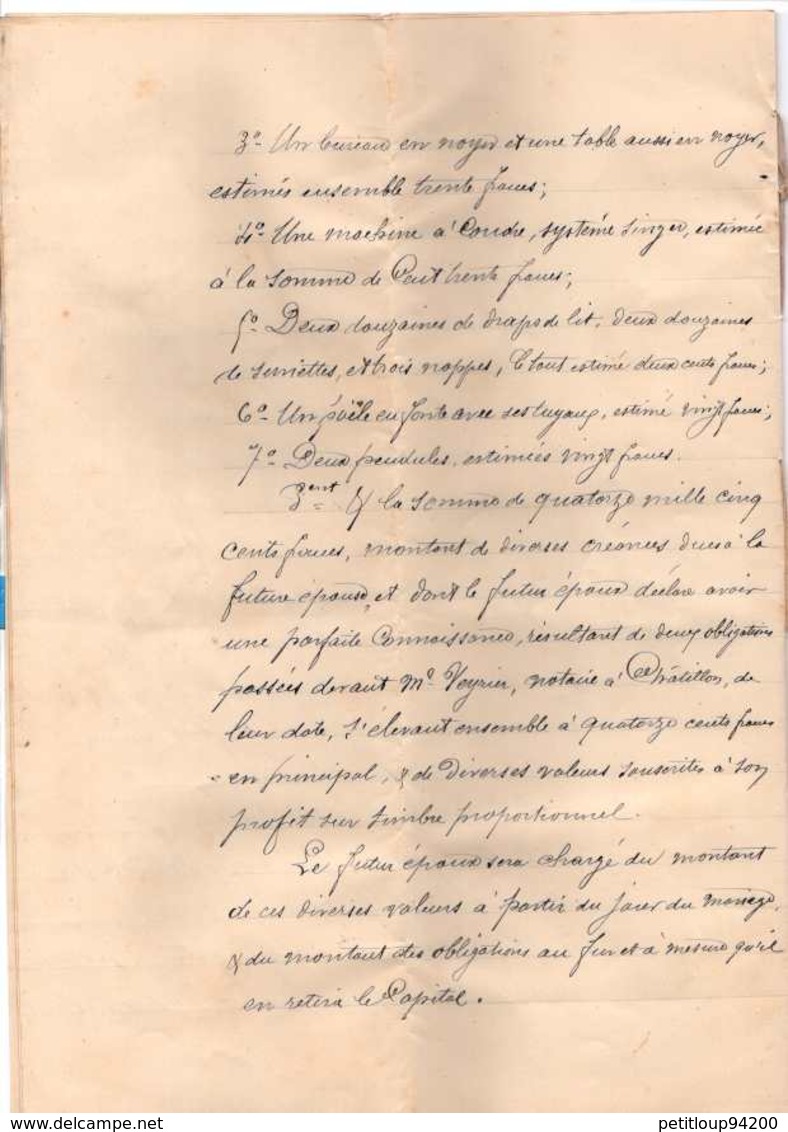 3º- Un bureau en noyer et une table aussi en noyer,
estimés ensemble trente francs;
4º- Une machine à Coudre, système Singer, estimée
à la Somme de Cent trente francs;
5º- Deux douzaines de draps de lit, deux douzaines
de serviettes, et trois nappes, le tout estimé deux cents francs;
6º- Un poële en fonte avec ses tuyaux, estimé vingt francs;
7º- Deux pendules, estimées vingt francs.
3ent & la somme de quatorze mille cinq
cents francs, montant de diverses créances dues à la
future épouse, et dont le futur époux déclare avoir
une parfaite Connaissance, résultant de deux obligations
passées devant Me Veyrier, notaire à Châtillon, de
leur date, s'élevant ensemble à quatorze cents francs
en principal, & de diverses valeurs souscrites à son
profit sur timbre proportionnel.
Le futur époux sera chargé du montant
de ces diverses valeurs à partir du jour du mariage,
& du montant des obligations au fur et à mesure qu'il
en retira le Capital.
delcampe.net
petitloup94200